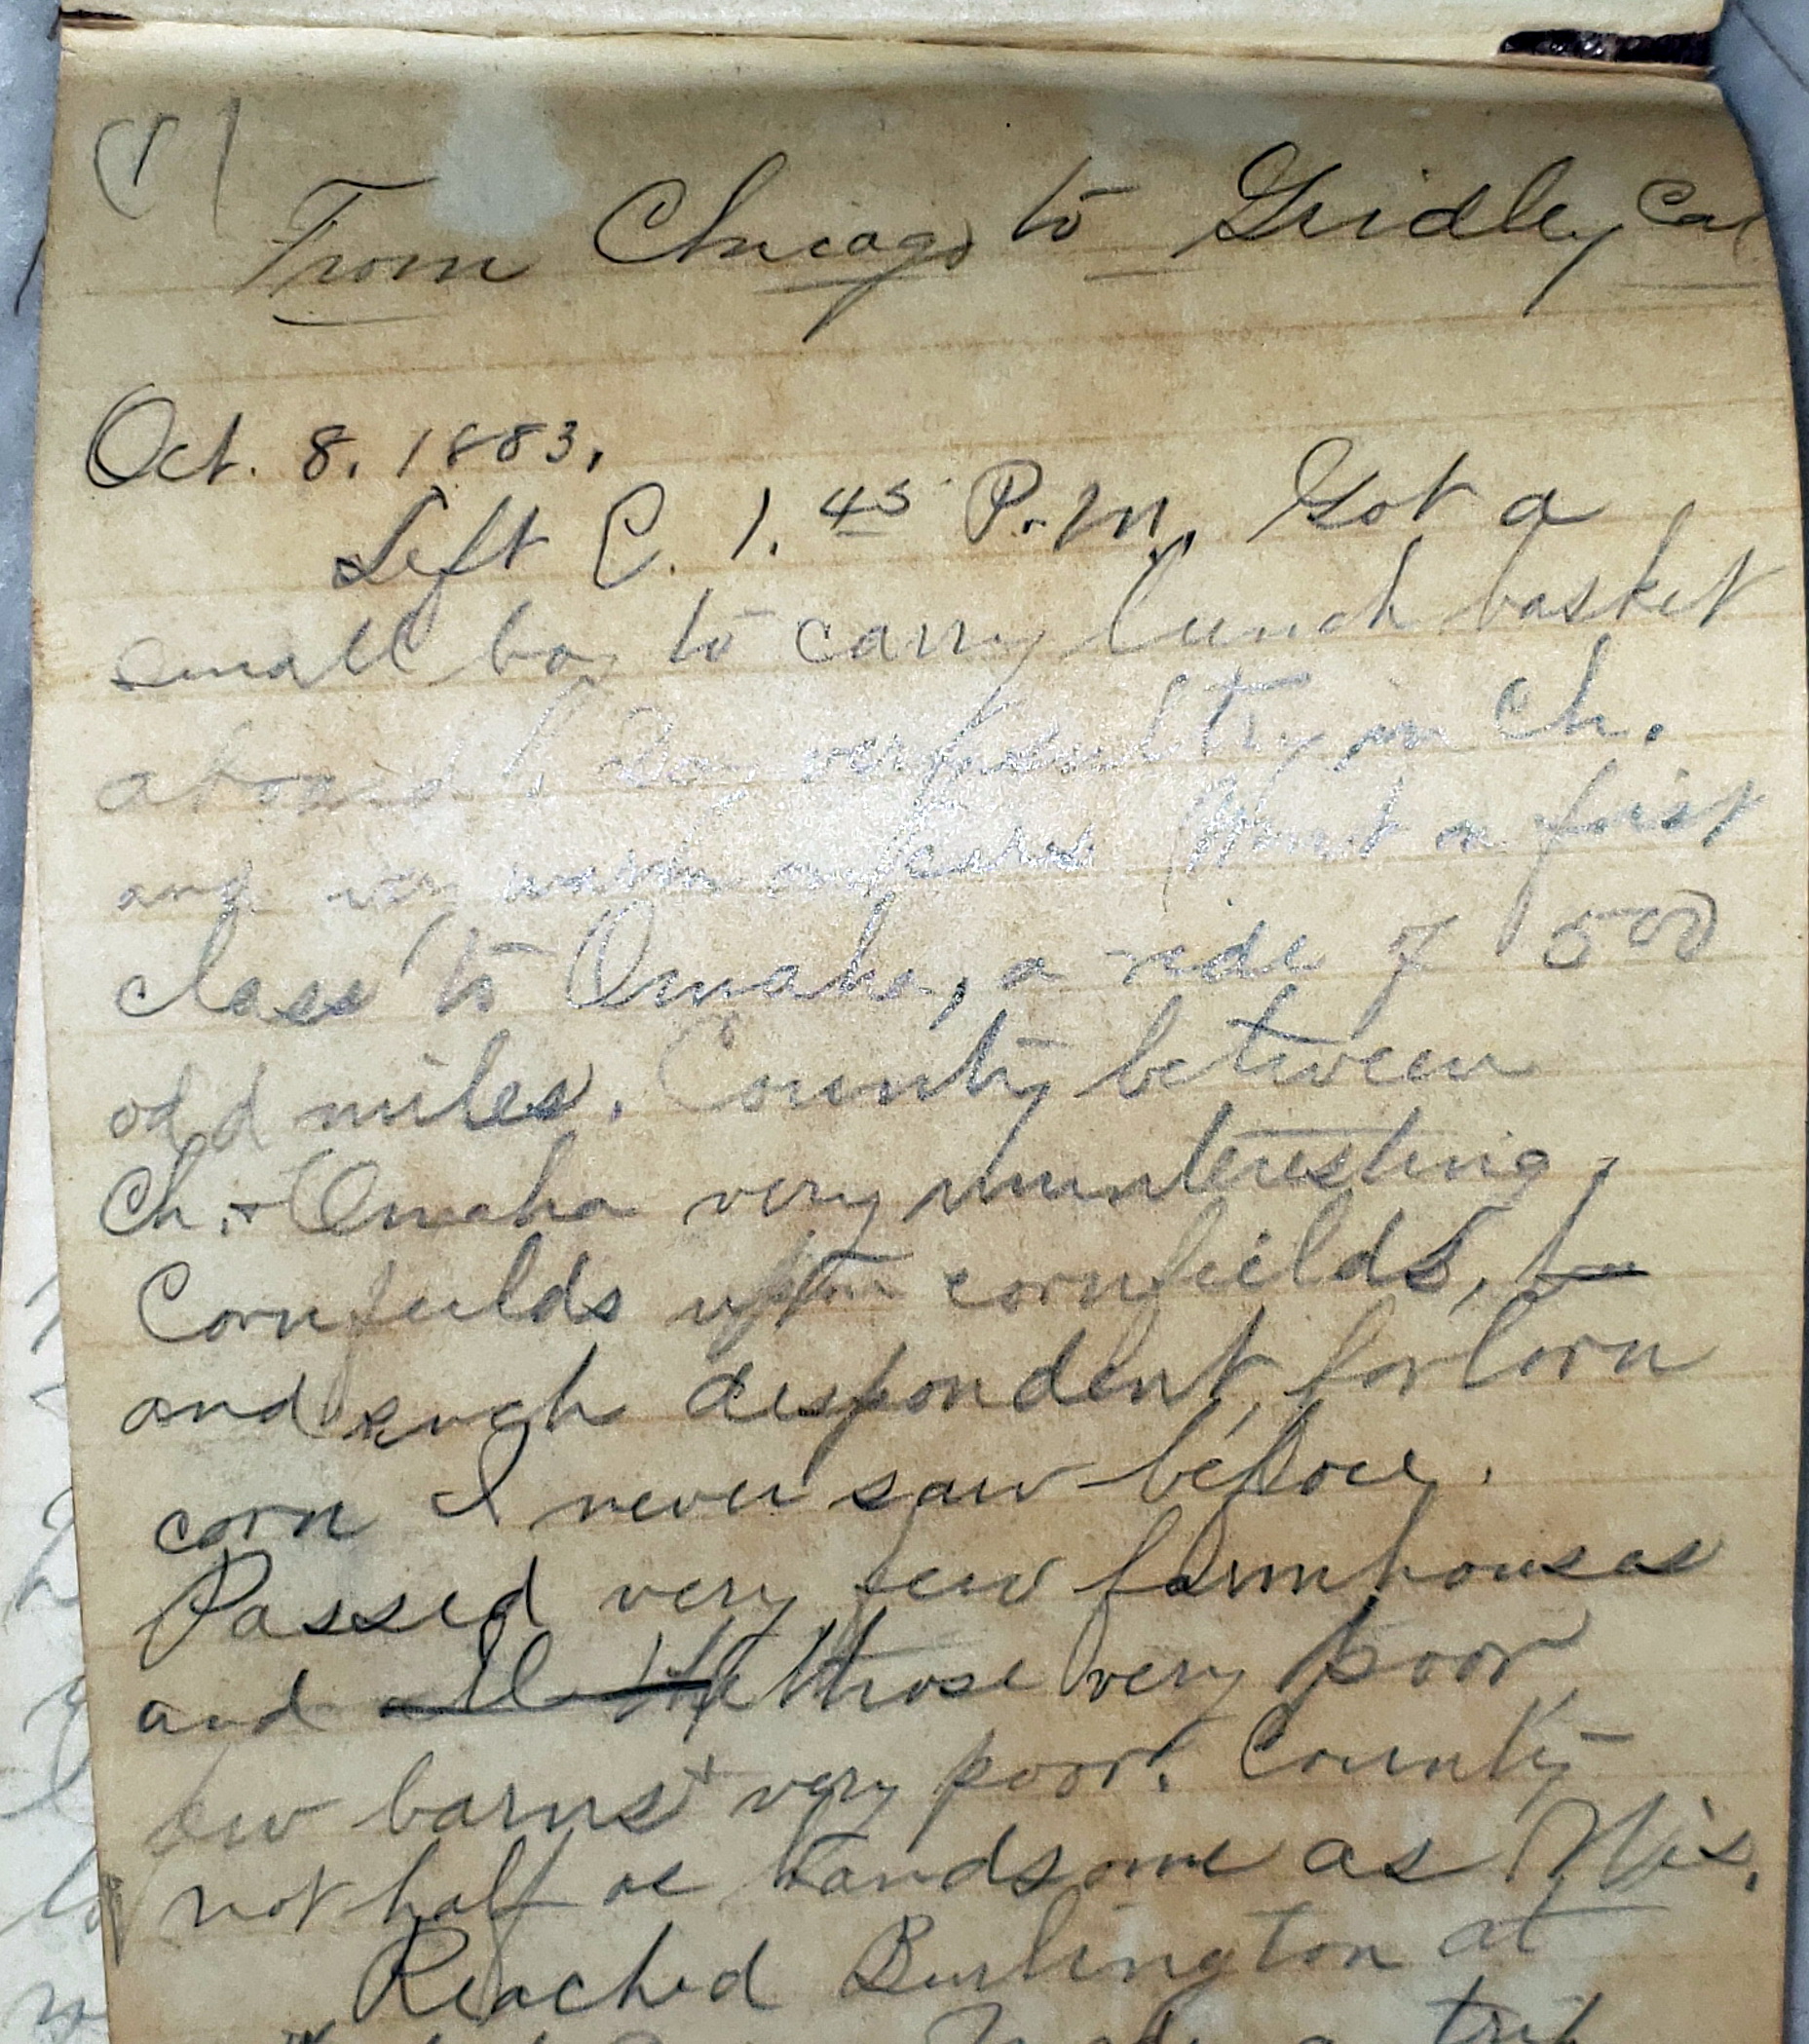 (1)
From Chicago to Gridley Cal
Oct. 8. 1883.
Left C. 1.45 P.M. Got a
small boy to carry lunch basket
aboard. Day very sultry in Ch.
and very warm on cars. Went on first
class to Omaha, a ride of 500
odd miles. Country between
Ch. + Omaha very uninteresting,
Cornfields upon cornfields,
and such despondent, forlorn
corn I never saw before.
Passed very few farmhouses
and all the those very poor,
few barns + very poor. Country
not half as handsome as Wis.
Reached Burlington at
trip